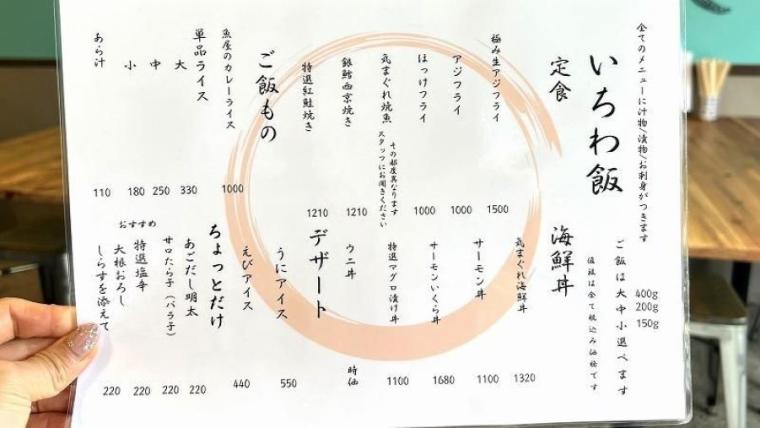 全てのメニューに汁物/漬物/お刺身がつきます
いちわ飯
ご飯は大中小選べます
400g
200g
150g
価格は全て税込み価格です
定食
極み生アジフライ
1500
アジフライ
1000
ほっけフライ
1000
気まぐれ焼魚
その都度異なります
スタッフにお聞きください
銀鱈西京焼き
1210
特選紅鮭焼き
1210
ご飯もの
魚屋のカレーライス
1000
単品ライス
大
330
中
250
小
180
あら汁
110
海鮮丼
気まぐれ海鮮丼
1320
サーモン丼
1100
サーモンいくら丼
1680
特選マグロ漬け丼
1100
ウニ丼
時価
デザート
うにアイス
550
えびアイス
440
ちょっとだけ
あごだし明太
220
サロたら子(バラ子)
220
おすすめ
特選塩辛
220
大根おろし
しらすを添えて
220